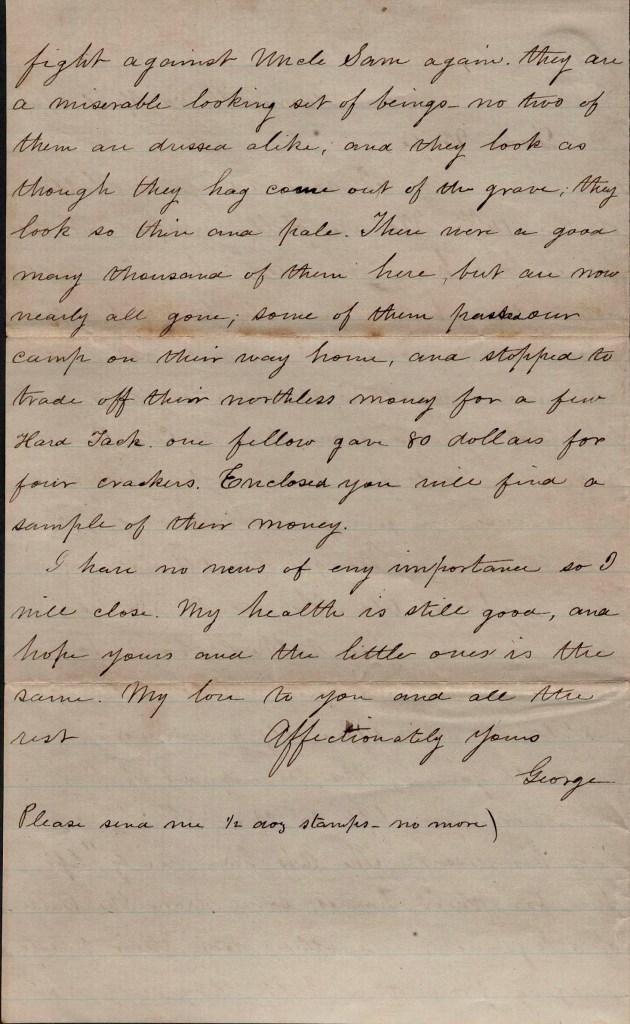 fight against Uncle Sam again. they are
a miserable looking set of beings - no two of
them are dressed alike, and they look as
though they hag come out of the grave; they
look so thin and pale. There were a good
many thousand of them here, but are now
nearly all gone; some of them passed our
camp on their way home, and stopped to
trade off their worthless money for a few
Hard Tack. one fellow gave 80 dollars for
four crackers. Enclosed you will find a
sample of their money.
I have no news of eny importance so I
will close. My health is still good, and
hope yours and the little ones is the
same. My love to you and all the
rest Affectionately yours
George
Please send me 1/2 doz stamps - no more)